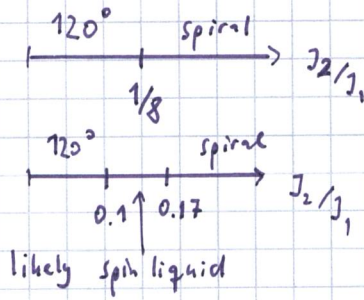 120° spiral
J₂/J₁
1/8
120° spiral
J₂/J₁
0.1 0.17
likely spin liquid